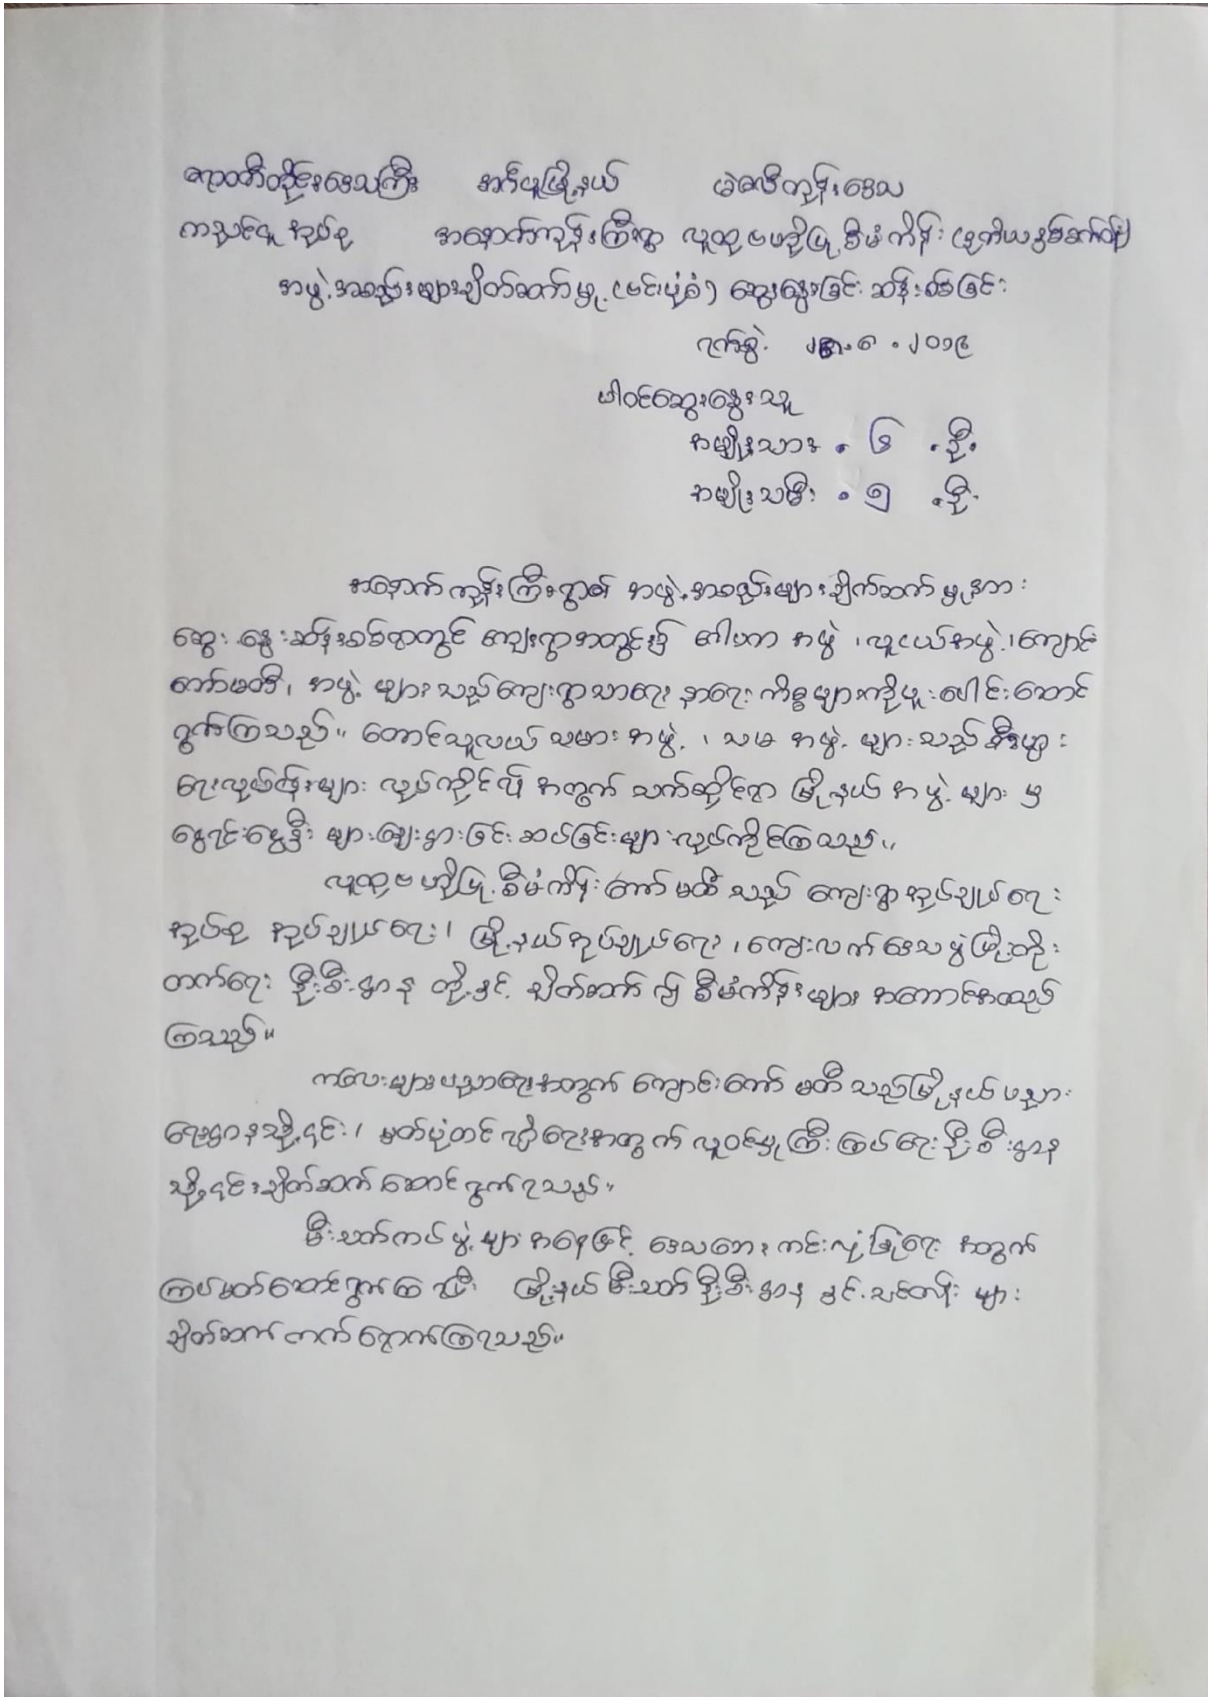 ဧရာဝတီတိုင်းဒေသကြီး အင်္ဂပူမြို့နယ် မဲဇလီကုန်းဒေသ
ကညင်ငူအုပ်စု အနောက်ကုန်းကြီးရွာ လူထုဗဟိုပြုစီမံကိန်း (ဒုတိယနှစ်ဆက်လက်)
အဖွဲ့အစည်းများချိတ်ဆက်မှု (ဗင်းပုံစံ) ဆွေးနွေးခြင်း ဆန်းစစ်ခြင်း
ရက်စွဲ ၆.၂၀၁၉
ပါဝင်ဆွေးနွေးသူ
အမျိုးသား . ၆ .ဦး
အမျိုးသမီး . ၅ .ဦး
အနောက်ကုန်းကြီးရွာ၏ အဖွဲ့အစည်းများချိတ်ဆက်မှုအား
ဆွေးနွေးဆန်းစစ်ရာတွင် ကျေးရွာအတွင်း၌ ဂေါပက အဖွဲ့၊ လူငယ်အဖွဲ့၊ ကျောင်း
ကော်မတီ၊ အဖွဲ့များသည် ကျေးရွာသာရေး နာရေး ကိစ္စများကိုပူးပေါင်းဆောင်
ရွက်ကြသည်။ တောင်သူလယ်သမားအဖွဲ့၊ သမအဖွဲ့များသည် စီးပွား
ရေးလုပ်ငန်းများ လုပ်ကိုင်ဖို့အတွက် သက်ဆိုင်ရာ မြို့နယ်အဖွဲ့များမှ
ငွေရင်းငွေနှီးများချေးငှားခြင်း ဆပ်ခြင်းများလုပ်ကိုင်ကြသည်။
လူထုဗဟိုပြုစီမံကိန်းကော်မတီသည် ကျေးရွာအုပ်ချုပ်ရေး
အုပ်စု အုပ်ချုပ်ရေး၊ မြို့နယ်အုပ်ချုပ်ရေး၊ ကျေးလက်ဒေသဖွံ့ဖြိုးတိုး
တက်ရေး ဦးစီးဌာနတို့နှင့် ချိတ်ဆက်၍ စီမံကိန်းများ အကောင်အထည်
ကြသည်။
ကလေးများပညာရေးအတွက် ကျောင်းကော်မတီသည်မြို့နယ်ပညာ
ရေးဌာနသို့၎င်း၊ မှတ်ပုံတင်ရရှိရေးအတွက် လူဝင်မှုကြီးကြပ်ရေးဦးစီးဌာန
သို့၎င်းချိတ်ဆက်ဆောင်ရွက်ရသည်။
မီးသတ်ကင်းဖွဲ့များအနေဖြင့် ဒေသဘေးကင်းလုံခြုံရေး အတွက်
ကြပ်မတ်ဆောင်ရွက်ကြရပြီး မြို့နယ်မီးသတ်ဦးစီးဌာနနှင့် သင်တန်းများ
ချိတ်ဆက်တက်ရောက်ကြရသည်။